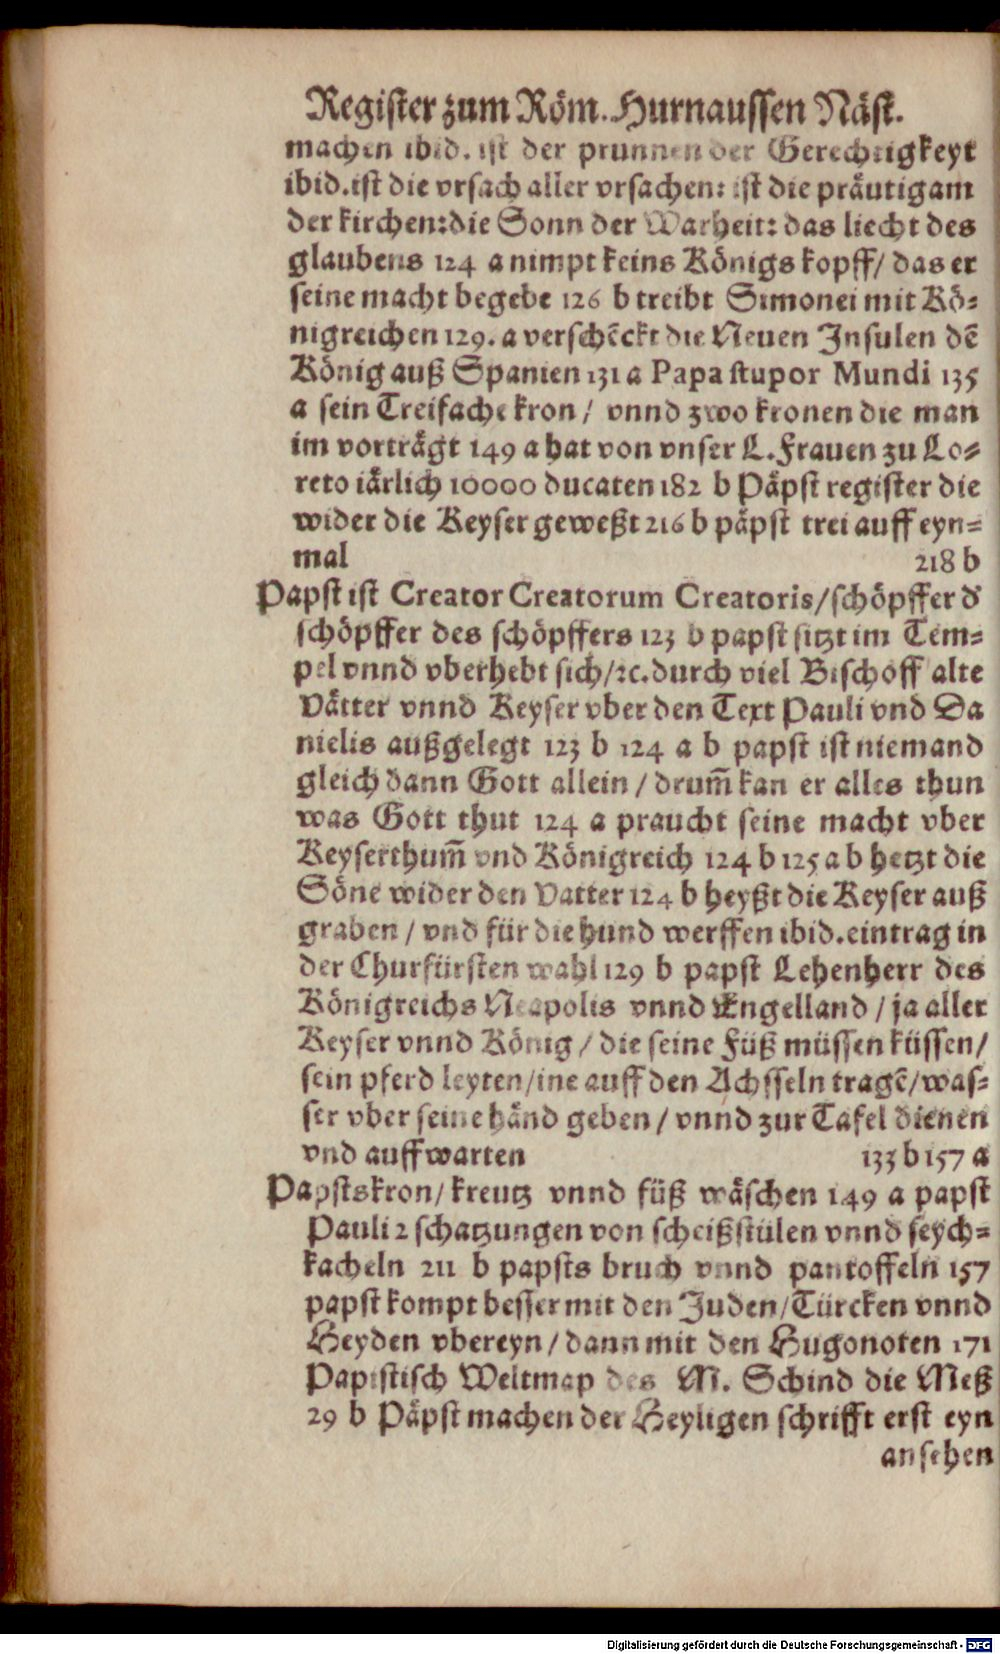 Register zum Röm. Hurnaussen Näst.
machen ibid. ist der prunnen der Gerechtigkeyt
ibid. ist die vrsach aller vrsachen: ist die präutigam
der kirchen: die Sonn der Warheit: das liecht des
glaubens 124 a nimpt keins Königs kopff/ das er
seine macht begebe 126 b treibt Simonei mit Kö-
nigreichen 129. a verschēckt die Neuen Insulen dē
König auß Spanien 131 a Papa stupor Mundi 135
a sein Treifache kron/ vnnd zwo kronen die man
im vorträgt 149 a hat von vnser L. Frauen zu Lo-
reto iärlich 10000 ducaten 182 b Päpst register die
wider die Keyser geweßt 216 b päpst trei auff eyn-
mal 218 b
Papst ist Creator Creatorum Creatoris/ schöpffer d'
schöpffer des schöpffers 123 b papst sitzt im Tem-
pel vnnd vberhebt sich/ ꝛc. durch viel Bischoff alte
Vätter vnnd Keyser vber den Text Pauli vnd Da
nielis außgelegt 123 b 124 a b papst ist niemand
gleich dann Gott allein/ drum̄ kan er alles thun
was Gott thut 124 a praucht seine macht vber
Keyserthum̄ vnd Königreich 124 b 125 a b hetzt die
Söne wider den Vatter 124 b heyßt die Keyser auß
graben/ vnd für die hund werffen ibid. eintrag in
der Churfürsten wahl 129 b papst Lehenherr des
Königreichs Neapolis vnnd Engelland/ ja aller
Keyser vnnd König/ die seine Füß müssen küssen/
sein pferd leyten/ ine auff den Achsseln tragē/ was-
ser vber seine händ geben/ vnnd zur Tafel dienen
vnd auffwarten 133 b 157 a
Papstskron/ kreutz vnnd füß wäschen 149 a papst
Pauli 2 schatzungen von scheißstülen vnnd seych-
kacheln 211 b papsts bruch vnnd pantoffeln 157
papst kompt besser mit den Juden/ Türcken vnnd
Heyden vbereyn/ dann mit den Hugonoten 171
Papistisch Weltmap des M. Schind die Meß
29 b Päpst machen der Heyligen schrifft erst eyn
ansehen
Digitalisierung gefördert durch die Deutsche Forschungsgemeinschaft - DFG